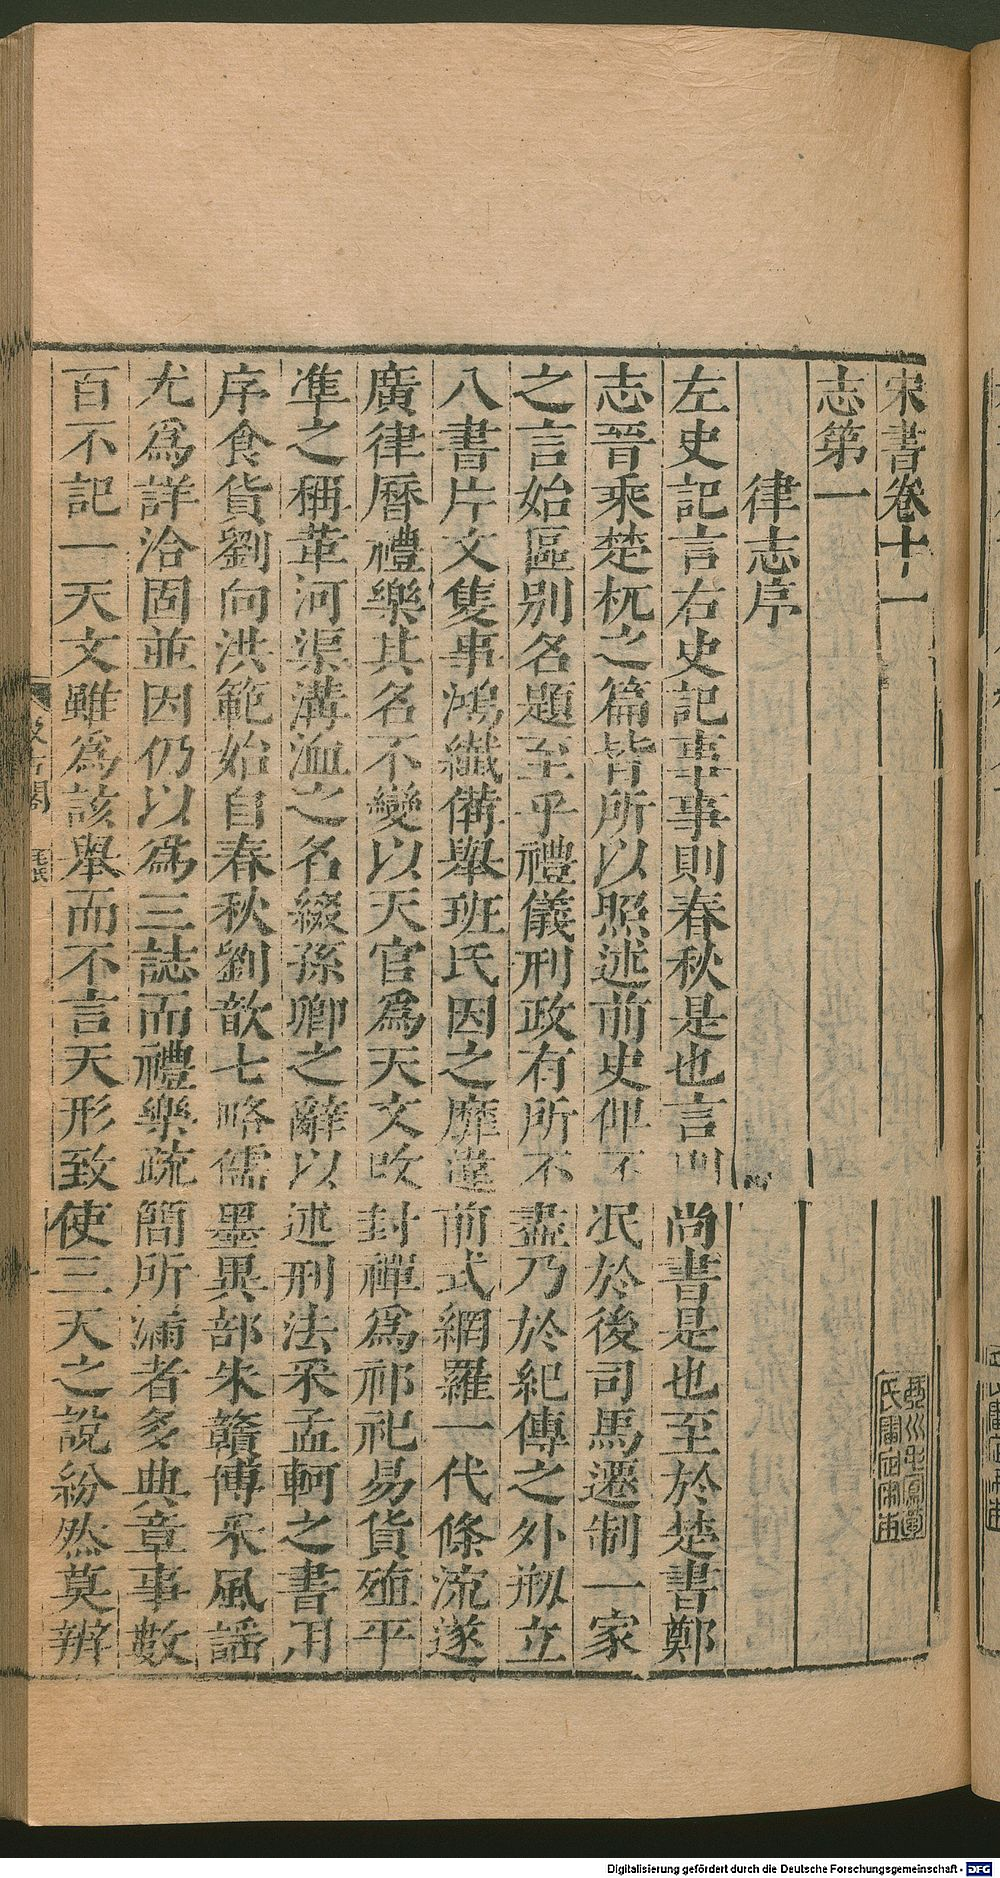 宋書卷十一
志第一
律志序
左史記言右史記事事則春秋是也言則尚書是也至於楚書鄭
志晉乘楚杌之篇皆所以照述前史俾不泯於後司馬遷制一家
之言始區別名題至乎禮儀刑政有所不盡乃於紀傳之外剏立
八書片文隻事鴻纖備舉班氏因之靡違前式網羅一代條流遂
廣律曆禮樂其名不變以天官爲天文改封禪爲祁祀易貨殖平
準之稱革河渠溝洫之名綴孫卿之辭以述刑法采孟軻之書用
序食貨劉向洪範始自春秋劉歆七略儒墨異部朱贛博采風謠
尤爲詳洽固並因仍以爲三誌而禮樂疏簡所漏者多典章事數
百不記一天文雖爲該舉而不言天形致使三天之說紛然莫辨
毛氏
Digitalisierung gefördert durch die Deutsche Forschungsgemeinschaft - DFG